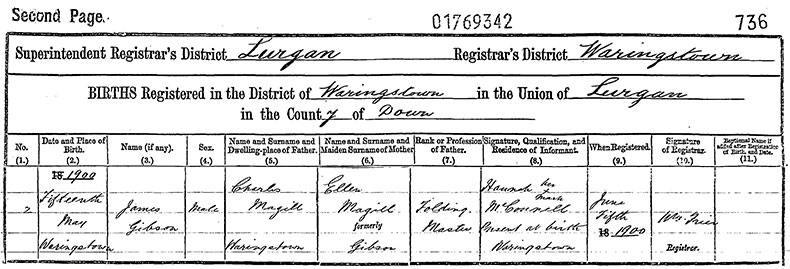 Second Page.
01769342
736
Superintendent Registrar's District Lurgan
Registrar's District Waringstown
BIRTHS Registered in the District of Waringstown in the Union of Lurgan
in the County of Down
No. (1.)
Date and Place of Birth. (2.)
Name (if any). (3.)
Sex. (4.)
Name and Surname and Dwelling-place of Father. (5.)
Name and Surname and Maiden Surname of Mother (6.)
Rank or Profession of Father. (7.)
Signature, Qualification, and Residence of Informant. (8.)
When Registered. (9.)
Signature of Registrar. (10.)
Baptismal Name if added after Registration of Birth, and Date. (11.)
2
18 1900
Fifteenth
May
Waringstown
James
Gibson
Male
Charles
Magill
Waringstown
Ellen
Magill
formerly
Gibson
Folding
Master
Hannah her
mark
McConnell
Present at birth
Waringstown
June
Fifth
18 1900
Wm
Registrar.